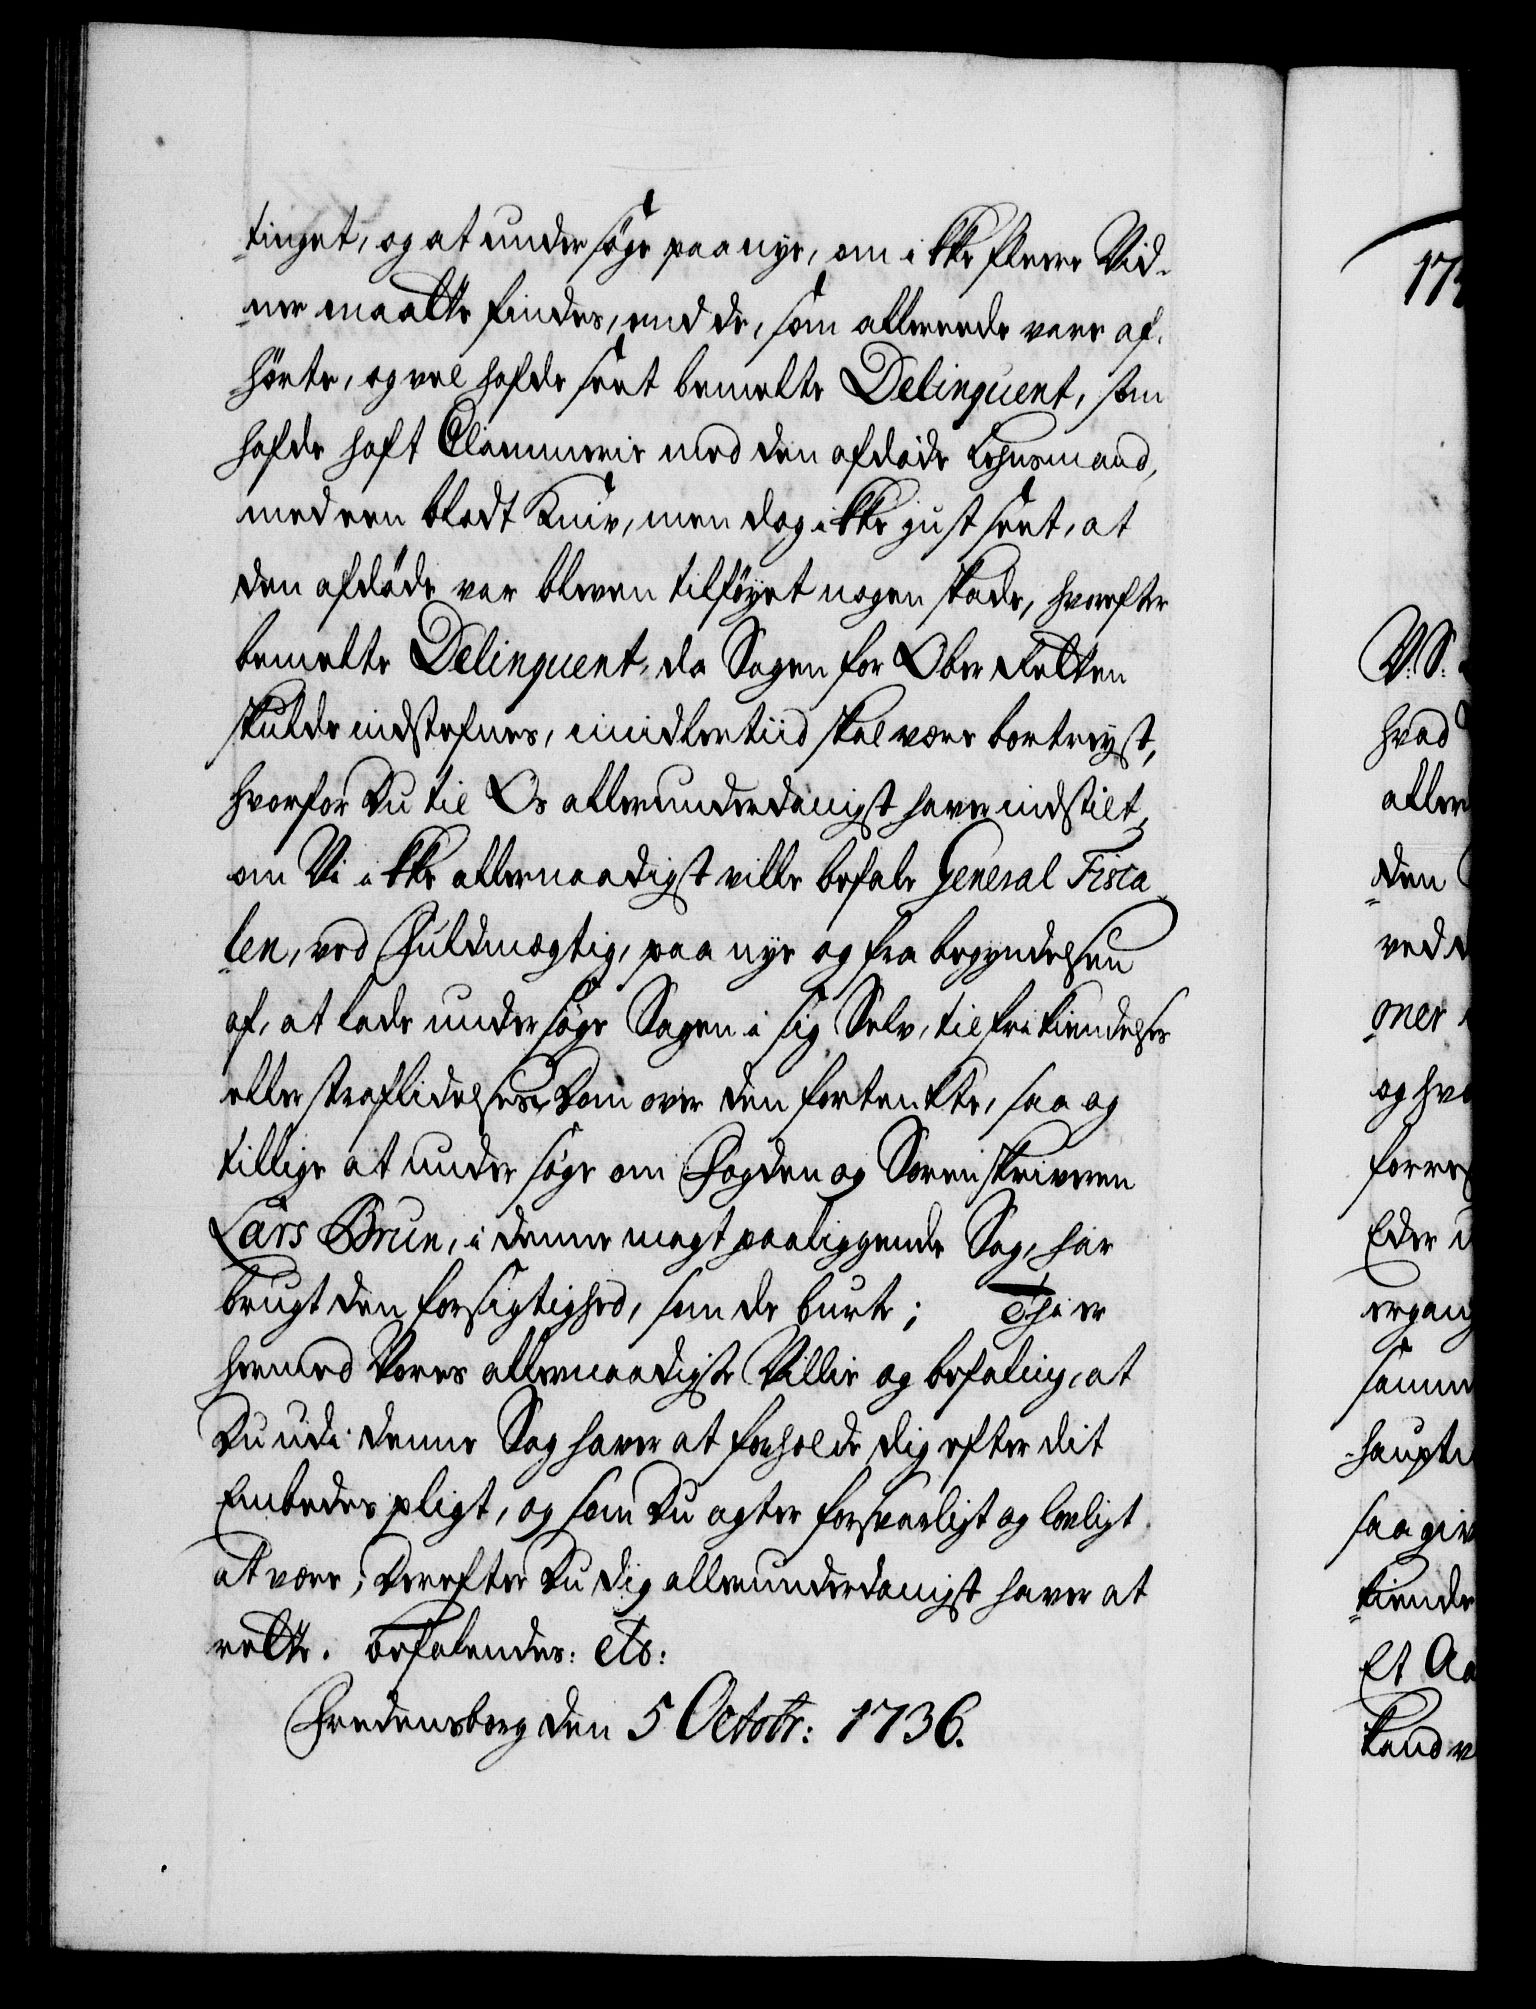 tinget, og at undersöge paa nye, om ikke fleere Vid-
ner maatte findes, end de, som allereede vare af-
hörte, og vel hafde seet bemelte Delinquent, som
hafde haft Clammerie med den afdöde Lehnsmand,
med een blodt Kniv, men dog ikke just seet, at
den afdöde var bleven tilföyet nogen skade, hvorefter
bemelte Delinquent, da Sagen for OberRetten
skulde indstefnes, imidlertiid skal være bortreyst,
hvorfor Du til Os allerunderdanigst haver indstilt,
om Vi ikke allernaadigst ville befale General Fisca-
len, ved Fuldmægtig, paa nye og fra begyndelsen
af, at lade undersöge Sagen i sig Selv, til frikiendelses
eller straflidelses Dom over den fortenkte, saa og
tillige at undersöge om Fogden og Sorenskriveren
Lars Brun, i denne magtpaaliggende Sag, har
brugt den forsigtighed, som de burte; Thi er
hermed Vores allernaadigste Villie og befaling, at
Du udi denne Sag haver at forholde dig efter dit
Embedes pligt, og som Du agter forsvarligt og lovligt
at være; Derefter Du dig allerunderdanigst haver at
rette. befalendes: etc:
Fredensborg den 5 Octobr: 1736.
173
V. S.
hvad
aller
den
ved
mer
og hvo
forres
Eder
ergang
samm
haupt
saa giv
kiende
et Aa